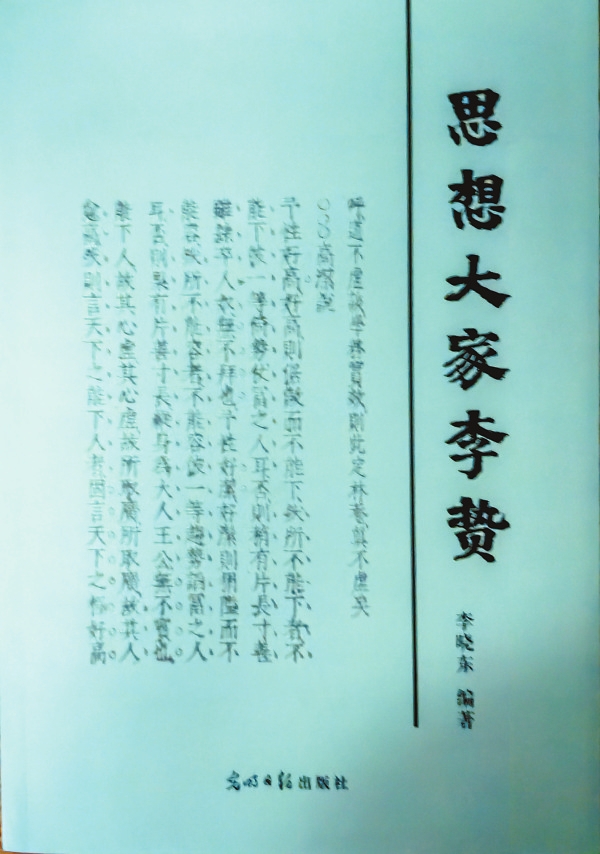 思想大家李贽
李晓东 编著
呼道不虛談學務實效則此定林菴真不虛矣
高潔說
予性好高好高則倨傲而不能下然所不能下者不
能下彼一等倚勢仗富之人耳否則稍有片長寸善
雖隸卒人奴無不拜也予性好潔好潔則狷隘而不
能容然所不能容者不能容彼一等趨勢諂富之人
耳否則果有片善寸長縱身為大人王公無不賓也
能下人故其心虛其心虛故所取廣所取廣故其人
愈高然則言天下之能下人者固言天下之極好高
光明日报出版社